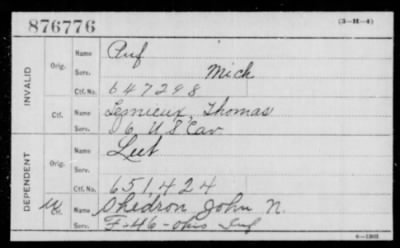 876776
(3-H-4)
INVALID
Orig.
Name
Serv. Mich
Ctf. No. 647298
Ctf.
Name Lemieux, Thomas
Serv. D 6, U S Cav
DEPENDENT
Orig.
Name
Serv.
Ctf. No. 651,424
Ctf.
Name Shedron John N.
Serv. F-46-Ohio Inf